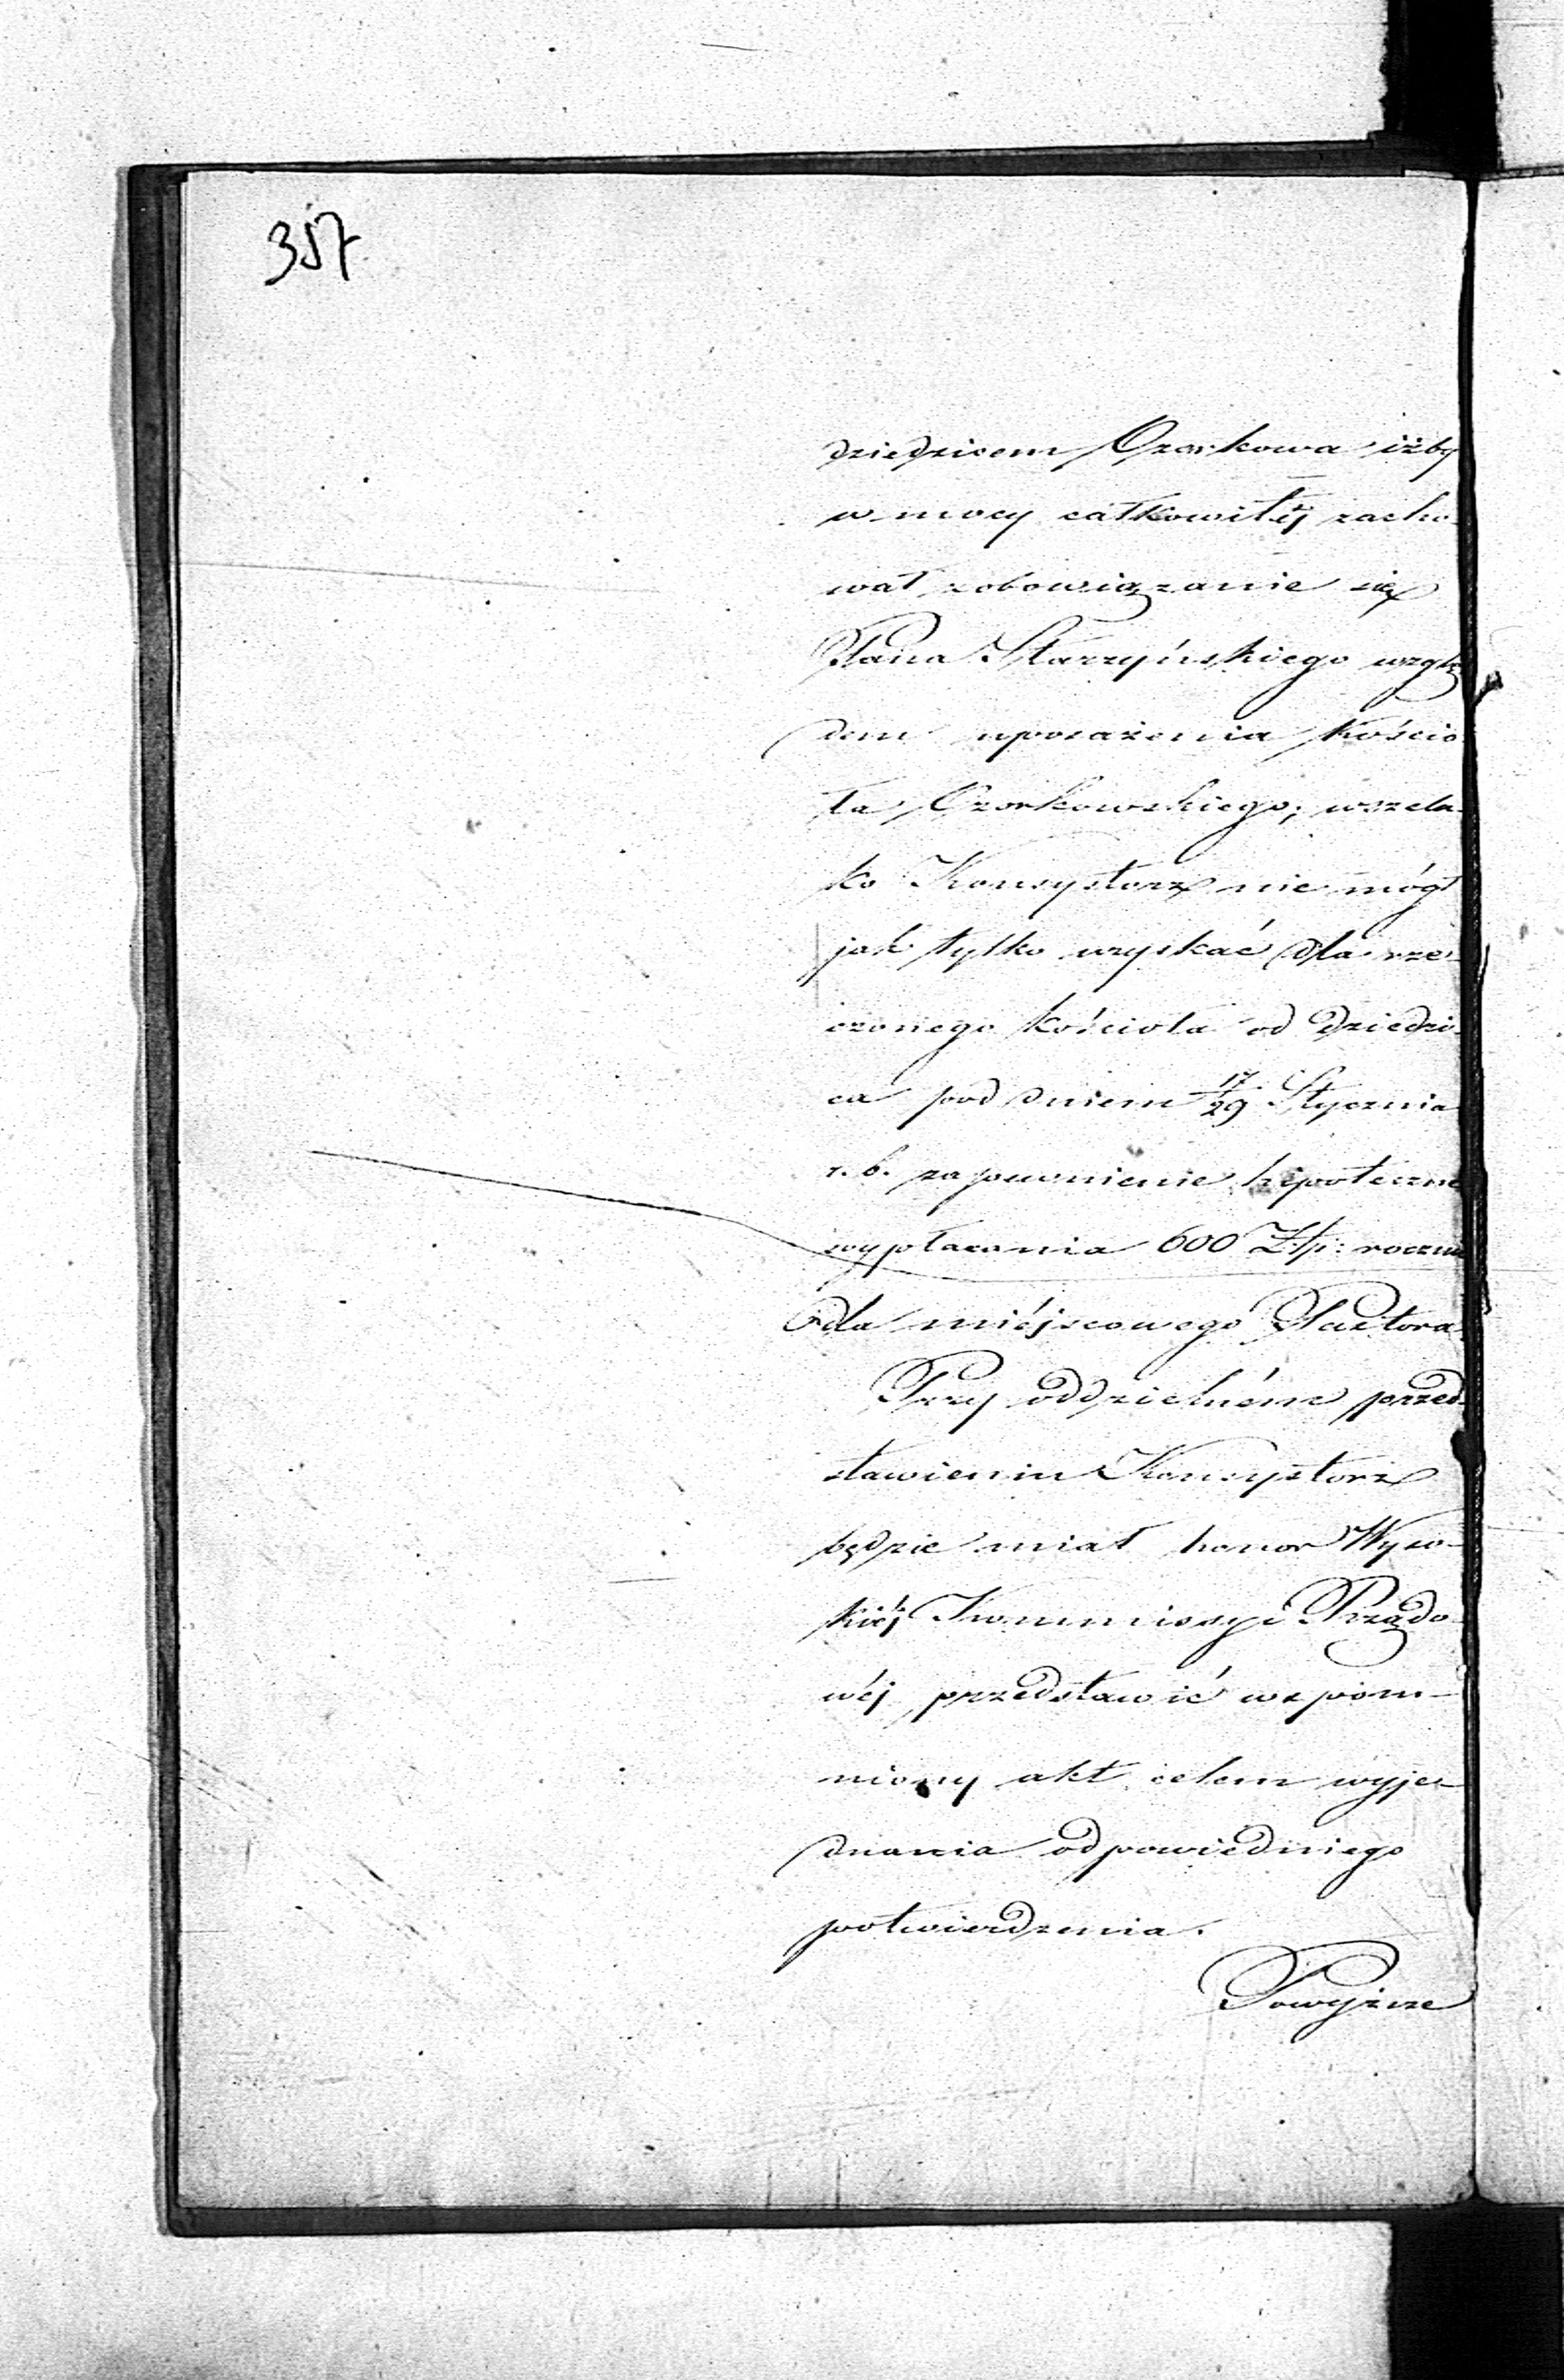 357
dziedzicem Ozorkowa iżby
w mocy całkowitéj zacho-
wał zobowiązanie się
Pana Starzyńskiego wzglę
dem uposażenia kościo
ła Ozorkowskiego; wszela-
ko Konsystorz nie mógł
jak tylko uzyskać dla rze-
czonego kościoła od dziedzi-
ca pod dniem 17/29 Stycznia
r. b. zapewnienie hipoteczne
wypłacania 600 Złp: rocznie
dla miéjscowego Pastora.
Przy oddzielném przed-
stawieniu Konsystorz
będzie miał honor Wyso-
kiéj Kommissyi Rządo-
wéj przedstawić wspom-
niony akt celem wyjed-
dnania odpowiedniego
potwierdzenia.
Powyższe